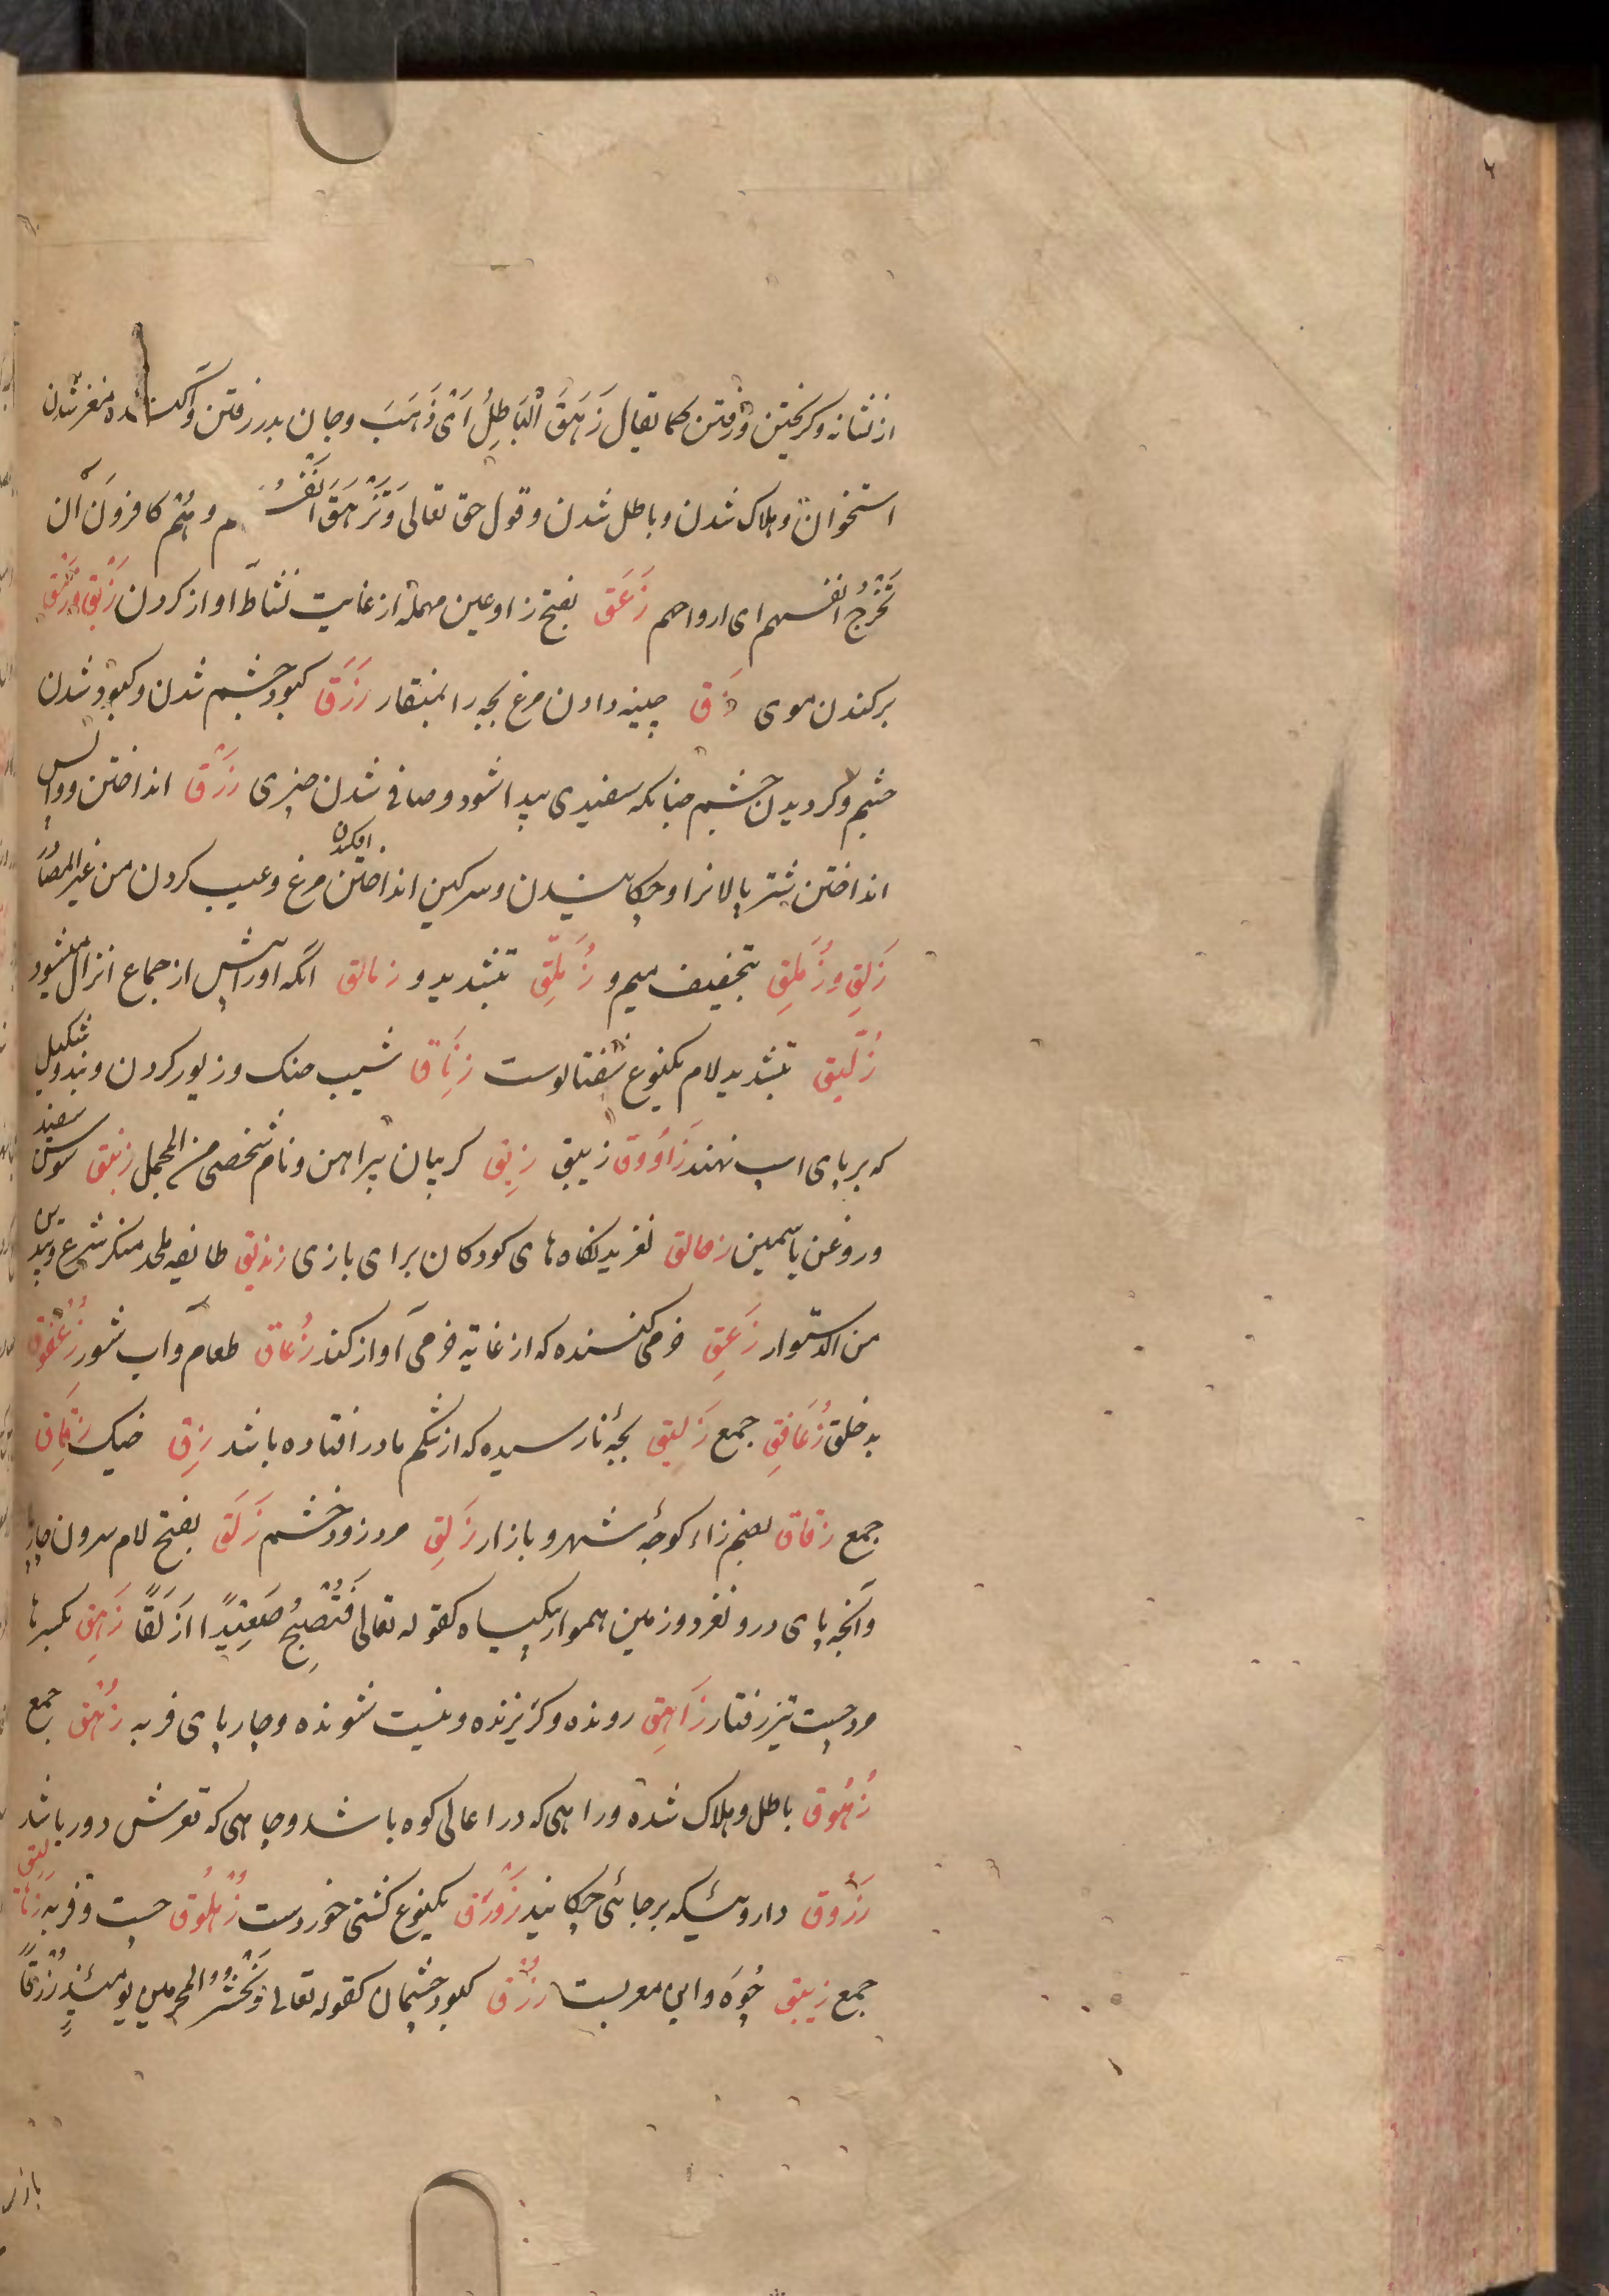 از نشانه و کریختن و رفتن کما یقال زَهَقَ الْبَاطِلُ اَیْ ذَهَبَ و جان بدر رفتن و آکنده مغز شدن
استخوان و هلاک شدن و باطل شدن و قول حق تعالی وَتَزْهَقَ اَنْفُسُهم و هُمْ کافرونَ ان
تَخْرُجُ انفسهم ای ارواحهم زَعَق بفتح زا و عین مهملة از غایت نشاط آواز کردن زَبْق و زَنْق
برکندن موی زَق چینه دادن مرغ بچه را بمنقار زَرَق کبود چشم شدن و کبود شدن
چشم و کردیدن چشم چنانکه سفیدی پیدا شود و صافی شدن چیزی زَرْق انداختن و واپس
انداختن شتر پالانرا و چکانیدن و سرکین انداختن افکندن مرغ و عیب کردن من غیر المصادر
زَلِق و زُمَلِق بتخفیف میم و زُمَّلِق بتشدید و زمالق آنکه او را پیش از جماع انزال میشود
زُلَّیق بتشدید لام یکنوع شفتالوست زِنَاق شیب حنک و زیور کردن و بند و شکیل
که بر پای اسپ نهند زَاوُوق زیبق زِیق کریبان پیراهن و نام شخصی من المجمل زنبق سوسن سفید
و روغن یاسمین زحالق لغزیدنکاه‌های کودکان برای بازی زندیق طایفه ملحد منکر شرع و بیدین
من الدستوار زَعِق خرمی کننده که از غایة خرمی آواز کند زُعاق طعام و آب شور زُعْفُوق
بدخلق زُعَافِق جمع زَلیق بچهٔ نارسیده که از شکم مادر افتاده باشد زِق خیک زِقَاق
جمع زقاق بضم زاء کوچهٔ شهر و بازار زَلِق مرد زود خشم زَلَق بفتح لام سرون چارپا
و آنچه پای درو لغزد و زمین هموار بیکیاه کقوله تعالی فَتُصْبِحُ صَعِیْدًا زَلَقًا زَهِق بکسر ها
مرد چست تیز رفتار زَاهِق رونده و کریزنده و نیست شونده و چارپای فربه زُهْق جمع
زُهُوق باطل و هلاک شده و راهی که در اعالی کوه باشد و چاهی که قعرش دور باشد
زَرُوق داروئیکه بر جائی چکانید زَوْرَق یکنوع کشتی خوردست زُهْلُوق چست و فربه زَنَالیق
جمع زیبق جُوَه و این معربست زُرْق کبود چشمان کقوله تعالی وَنَحْشُرُ المجرمین یَومئِذٍ زُرْقًا